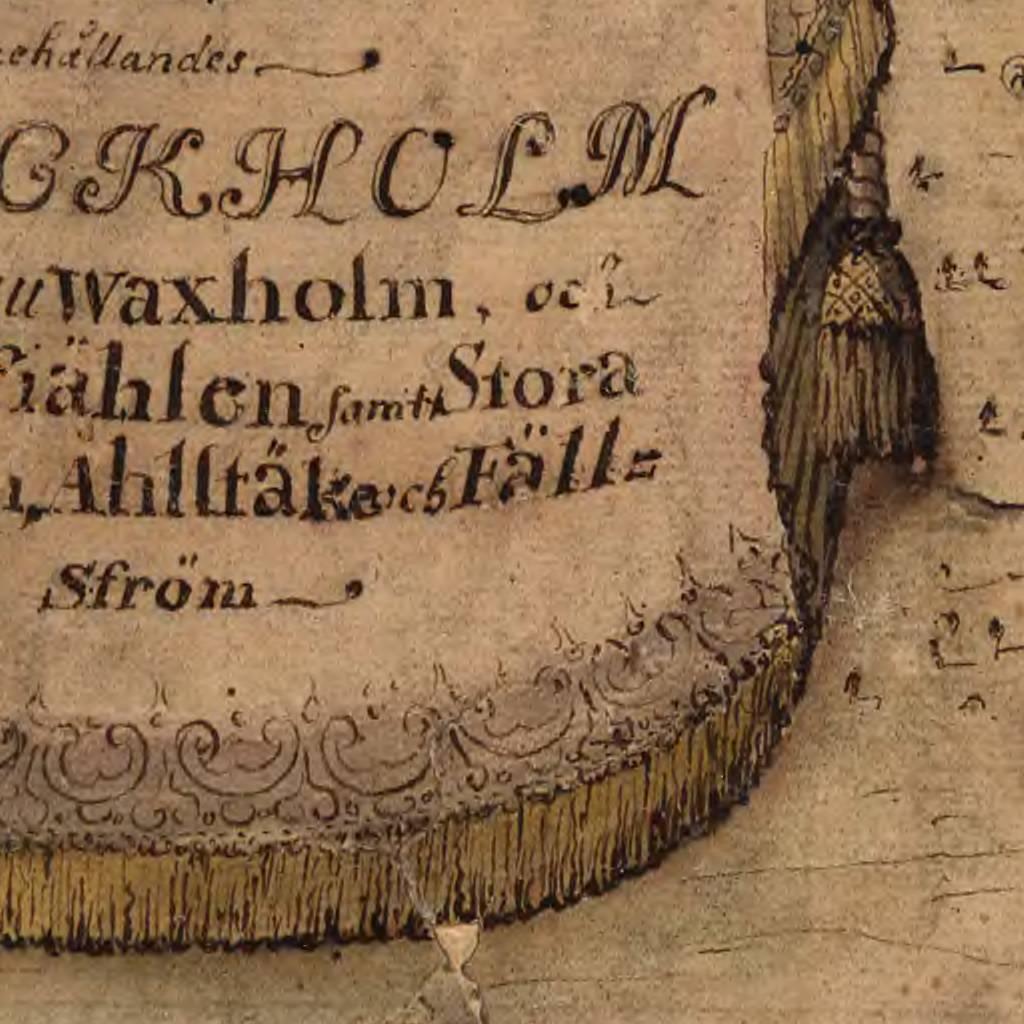 ehållandes
CKHOLM
Waxholm, och
fiählen samt Stora
Ahlstäke och Fäll=
Ström